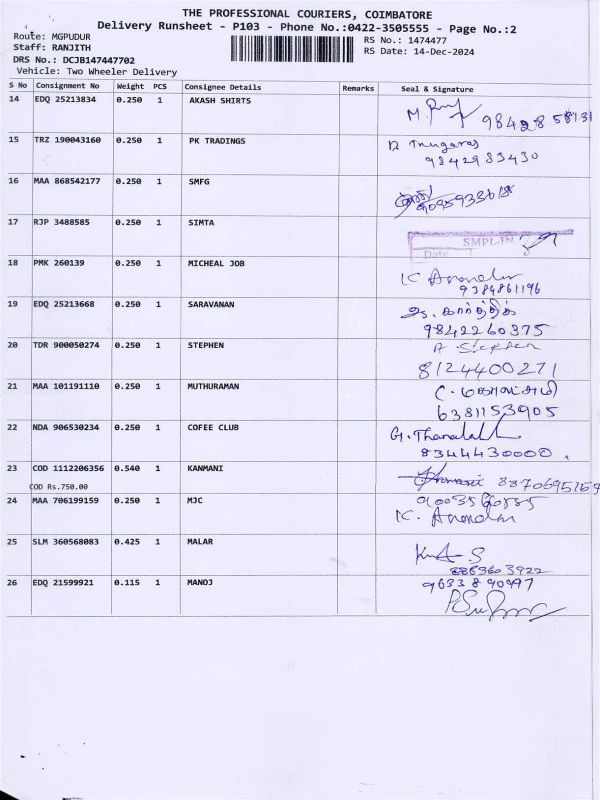 THE PROFESSIONAL COURIERS, COIMBATORE
Delivery Runsheet - P103 - Phone No.:0422-3505555 - Page No.:2
Route: MGPUDUR RS No.: 1474477
Staff: RANJITH RS Date: 14-Dec-2024
DRS No.: DCJB147447702
Vehicle: Two Wheeler Delivery
S No Consignment No Weight PCS Consignee Details Remarks Seal & Signature
14 EDQ 25213834 0.250 1 AKASH SHIRTS
15 TRZ 190043160 0.250 1 PK TRADINGS
9842983430
16 MAA 868542177 0.250 1 SMFG
17 RJP 3488585 0.250 1 SIMTA
SMPL IN
Date
18 PMK 260139 0.250 1 MICHEAL JOB
9384861196
19 EDQ 25213668 0.250 1 SARAVANAN
கார்த்திக்
9842260375
20 TDR 900050274 0.250 1 STEPHEN A. Stephen
8124400271
21 MAA 101191110 0.250 1 MUTHURAMAN
6381153905
22 NDA 906530234 0.250 1 COFEE CLUB
8344430000
23 COD 1112206356 0.540 1 KANMANI 8870695169
COD Rs.750.00
24 MAA 706199159 0.250 1 MJC
25 SLM 360568083 0.425 1 MALAR
8863603922
26 EDQ 21599921 0.115 1 MANOJ 9633890997